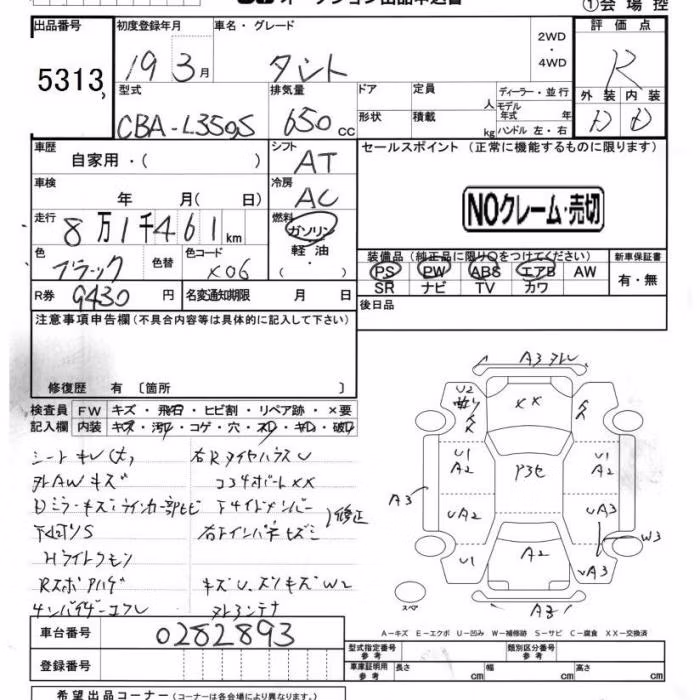 ①会場控
出品番号 初度登録年月 車名・グレード 評価点
5313 19年3月 タント 2WD・4WD R
型式 排気量 ドア 定員 人 ディーラー・並行 外装 内装
CBA-L350S 650cc 形状 積載 kg モデル年式 年 ハンドル 左・右 D D
車歴 シフト セールスポイント(正常に機能するものに限ります)
自家用・( ) AT
車検 年 月( 日) 冷房 AC
NOクレーム・売切
走行 8万1千461km 燃料 ガソリン
軽油・( )
色 ブラック 色替 色コード X06
装備品(純正品に限り○をつけてください) 新車保証書
PS PW ABS エアB AW 有・無
SR ナビ TV カワ
R券 9430円 名変通知期限 月 日 後日品
注意事項申告欄(不具合内容等は具体的に記入して下さい)
修復歴 有〔箇所 〕
検査員 FW キズ・飛石・ヒビ割・リペア跡・×要
記入欄 内装 キズ・汚レ・コゲ・穴・スレ・キレ・破レ
シートキレ(大) 右Rタイヤハウス U
AWキズ コアサポートXX
修正
Rスポアハゲ キズU、ズレキズW2
A3
U2 XX
U1 A2 U1 A2
A3
UA2 UA3
W3
U1 A2 UA3
スペア
A-キズ E-エクボ U-凹み W-補修跡 S-サビ C-腐食 XX-交換済
車台番号 0282893
型式指定番号 参考 類別区分番号 参考
登録番号 車庫証明用 参考 長さ cm 幅 cm 高さ cm
希望出品コーナー(コーナーは各会場により異なります。)